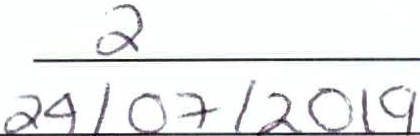 2
24/07/2019